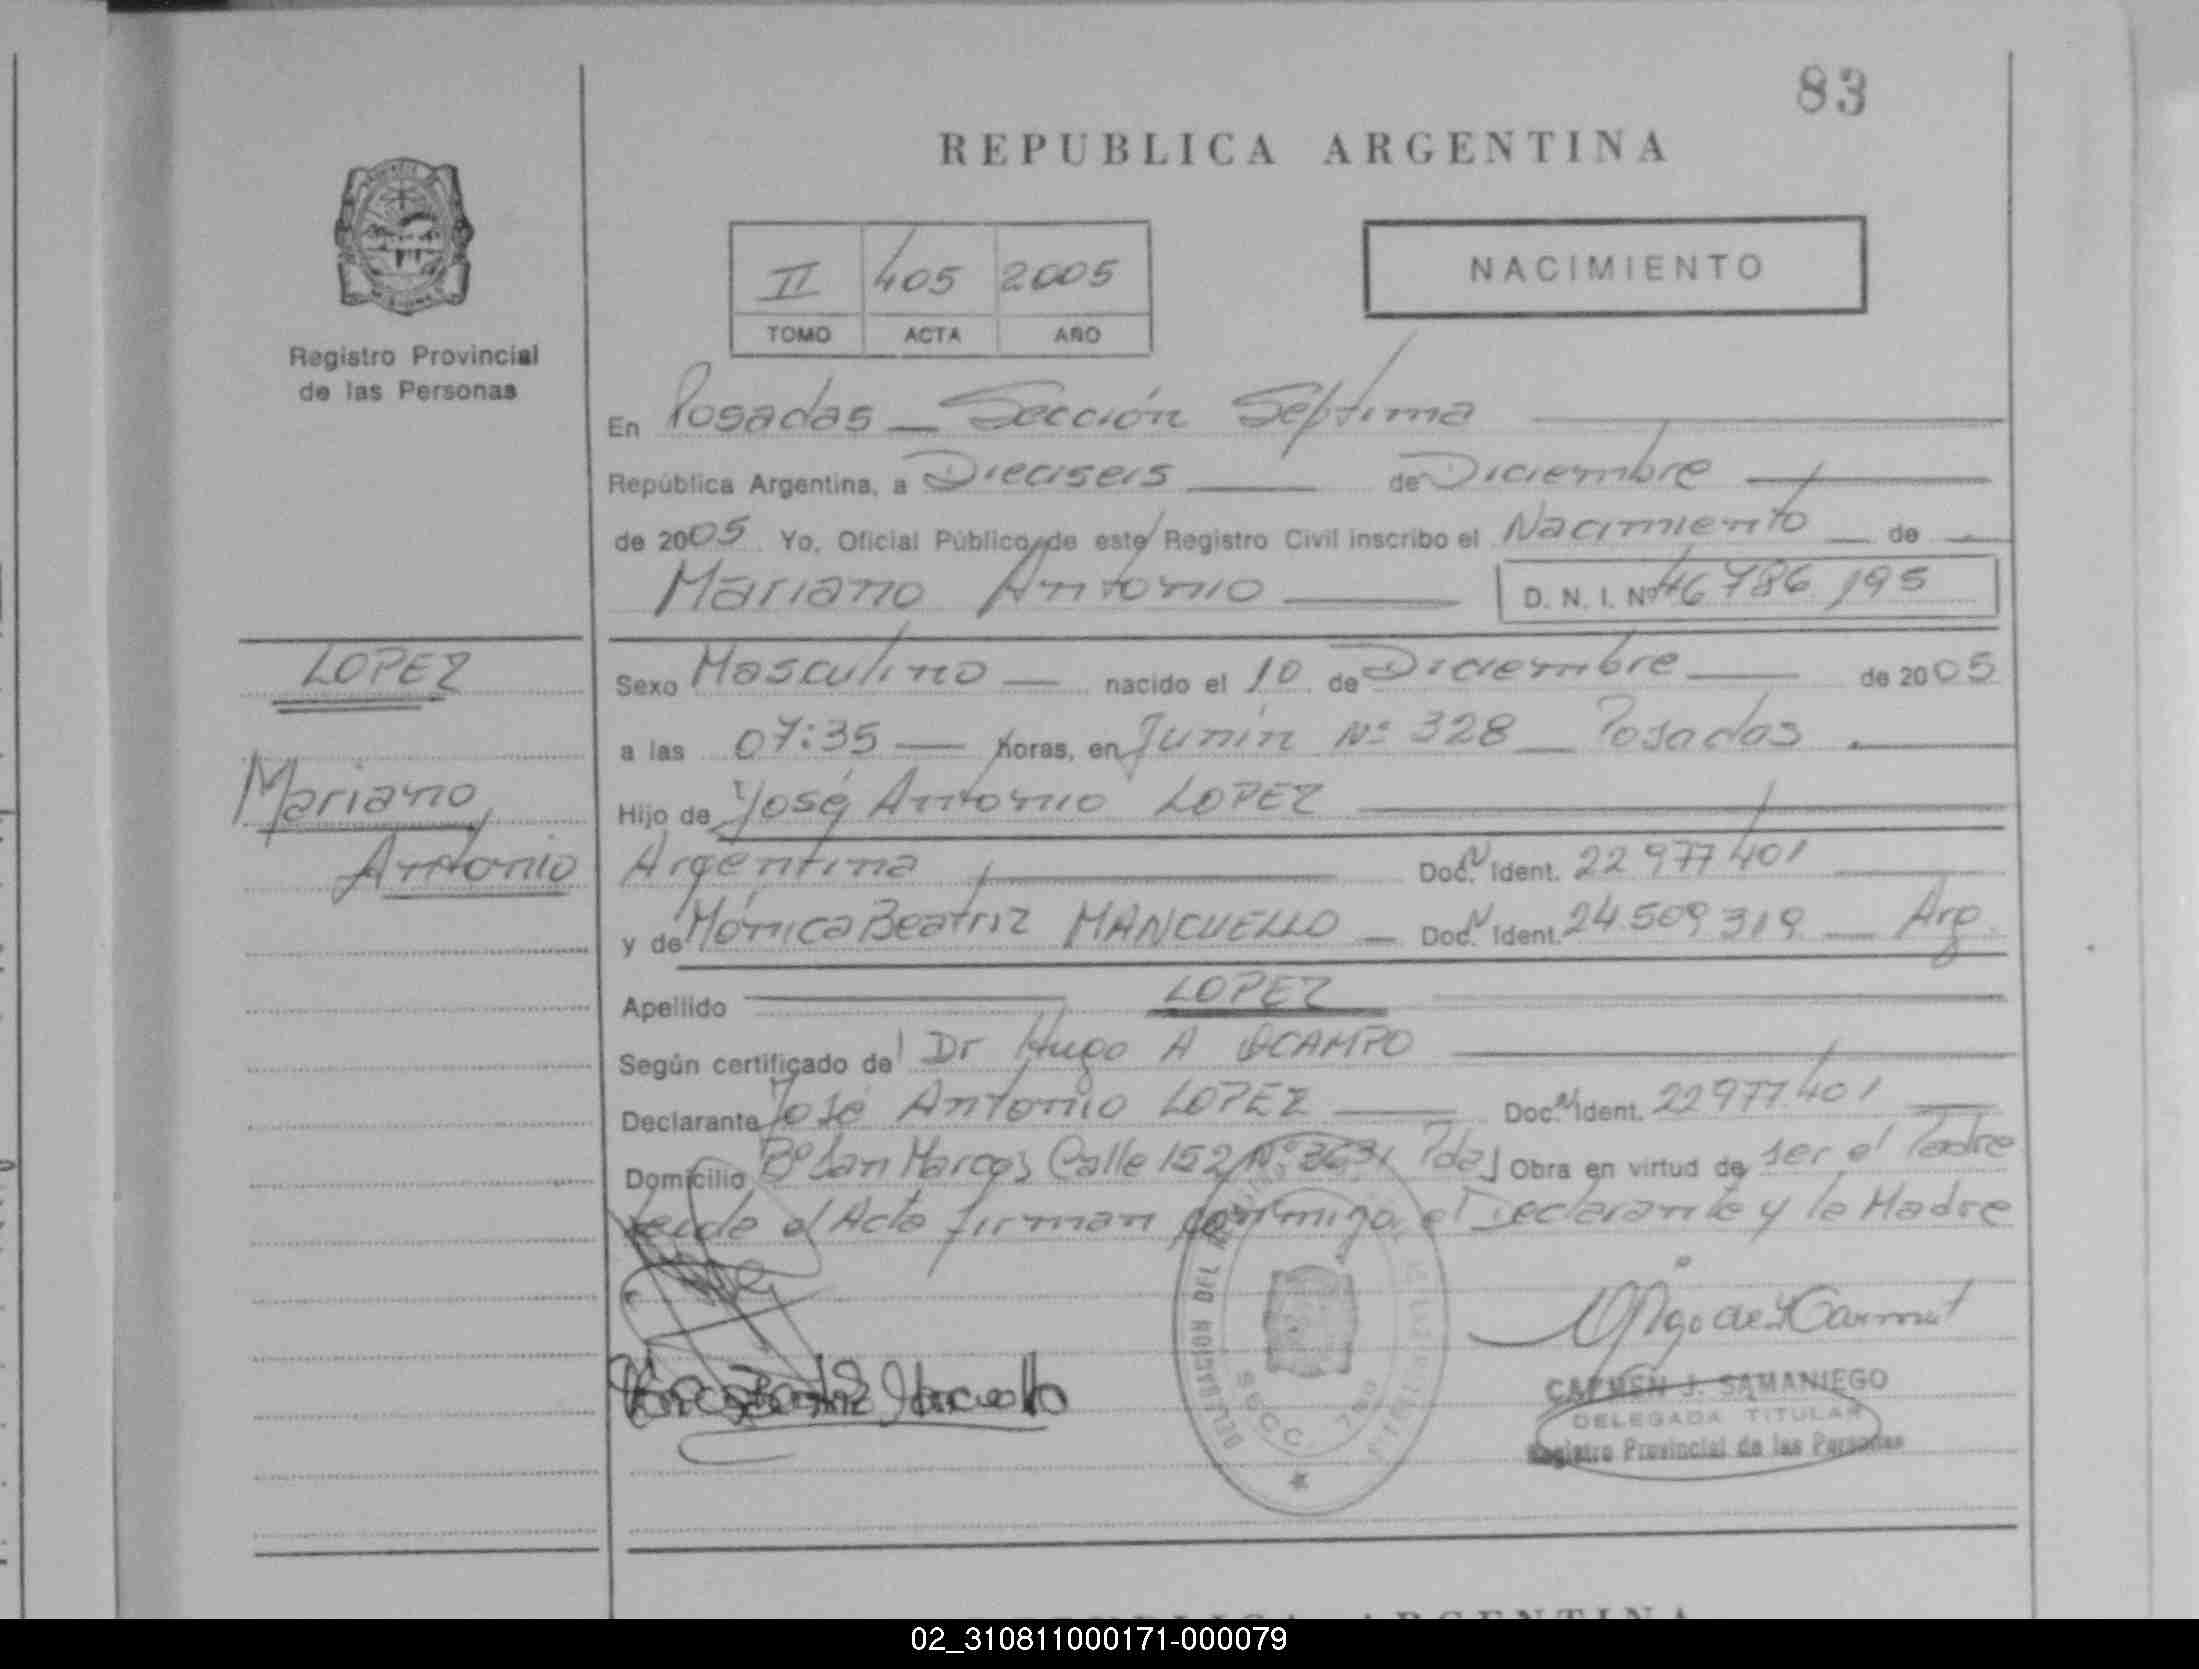 83
REPUBLICA ARGENTINA
II 405 2005
TOMO ACTA AÑO
NACIMIENTO
Registro Provincial
de las Personas
En Posadas — Sección Séptima
República Argentina, a Dieciseis de Diciembre
de 2005 Yo, Oficial Público de este Registro Civil inscribo el Nacimiento de
Mariano Antonio D. N. I. Nº 46 786 195
LOPEZ
Mariano
Antonio
Sexo Masculino nacido el 10 de Diciembre de 2005
a las 07:35 horas, en Junín Nº 328 — Posadas
Hijo de José Antonio LOPEZ
Argentina Doc. N Ident. 22 977 401
y de Mónica Beatriz MANCUELLO — Doc. N Ident. 24 509 319 — Arg.
Apellido LOPEZ
Según certificado de Dr Hugo A OCAMPO
Declarante José Antonio LOPEZ Doc. N Ident. 22 977 401
Domicilio Bº San Marcos Calle 152 Nº Pdas Obra en virtud de ser el Padre
leida el Acta firman conmigo el Declarante y la Madre
DELEGACION DEL
SECC. 7
CARMEN J. SAMANIEGO
DELEGADA TITULAR
Registro Provincial de las Personas
REPUBLICA ARGENTINA
02_310811000171-000079